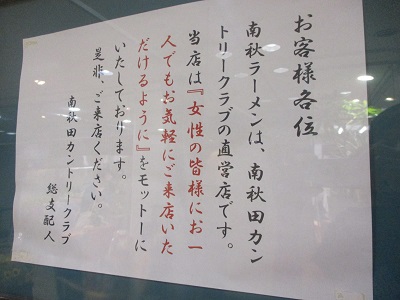 お客様各位
南秋ラーメンは、南秋田カン
トリークラブの直営店です。
当店は『女性の皆様にお一
人でもお気軽にご来店いた
だけるように』をモットーに
いたしております。
是非、ご来店ください。
南秋田カントリークラブ
総支配人